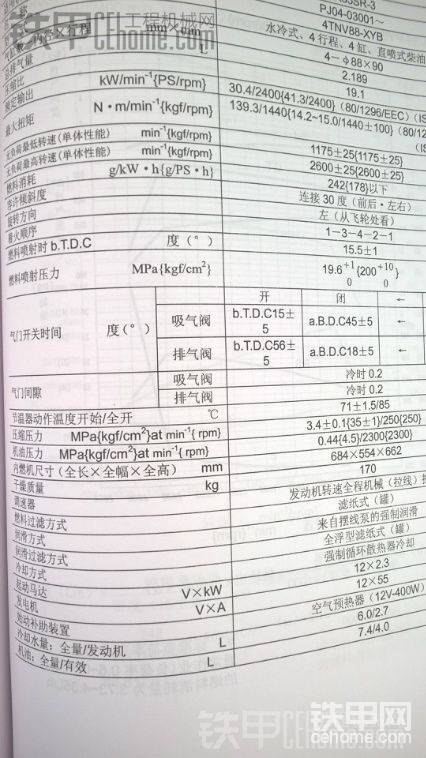 铁甲 工程机械网
CEhome.com
35SR-3
PJ04-03001～
4TNV88-XYB
水冷式、4行程、4缸、直喷式柴油
×行程 mm×mm 4－φ88×90
总排气量 L 2.189
压缩比 19.1
额定输出 kW/min⁻¹{PS/rpm} 30.4/2400{41.3/2400}（80/1296/EEC）(IS
最大扭矩 N・m/min⁻¹{kgf/rpm} 139.3/1440{14.2~15.0/1440±100}（80/12
无负荷最低转速(单体性能) min⁻¹{kgf/rpm} 1175±25{1175±25}
无负荷最高转速(单体性能) min⁻¹{kgf/rpm} 2600±25{2600±25}
燃料消耗 g/kW・h{g/PS・h} 242{178}以下
容许倾斜度 连接30度（前后・左右）
旋转方向 左（从飞轮处看）
着火顺序 1－3－4－2－1
燃料喷射时b.T.D.C 度（°） 15.5±1
燃料喷射压力 MPa{kgf/cm²} 19.6 +1 0 {200 +10 0 }
开 闭 ←
气门开关时间 度(°) 吸气阀 b.T.D.C15±5 a.B.D.C45±5 ←
排气阀 b.T.D.C56±5 a.B.D.C18±5 ←
气门间隙 吸气阀 冷时0.2
排气阀 冷时0.2
节温器动作温度开始/全开 ℃ 71±1.5/85
压缩压力 MPa{kgf/cm²}at min⁻¹{ rpm} 3.4±0.1{35±1}/250{250}
机油压力 MPa{kgf/cm²}at min⁻¹{ rpm} 0.44{4.5}/2300{2300}
内燃机尺寸（全长×全幅×全高） mm 684×554×662
干燥质量 kg 170
调速器 发动机转速全程机械（拉线）控
燃料过滤方式 滤纸式（罐）
润滑方式 来自摆线泵的强制润滑
润滑过滤方式 全浮型滤纸式（罐）
冷却方式 强制循环散热器冷却
起动马达 V×kW 12×2.3
发电机 V×A 12×55
始动补助装置 空气预热器（12V-400W）
冷却水量：全量/发动机 L 6.0/2.7
机油：全量/有效 L 7.4/4.0
铁甲 CEhome.com
铁甲网
cehome.com